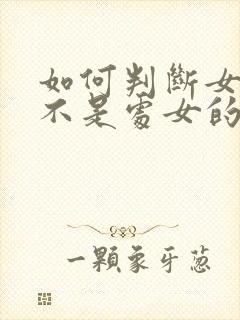 如何判斷女
不是處女的
一顆象牙蔥